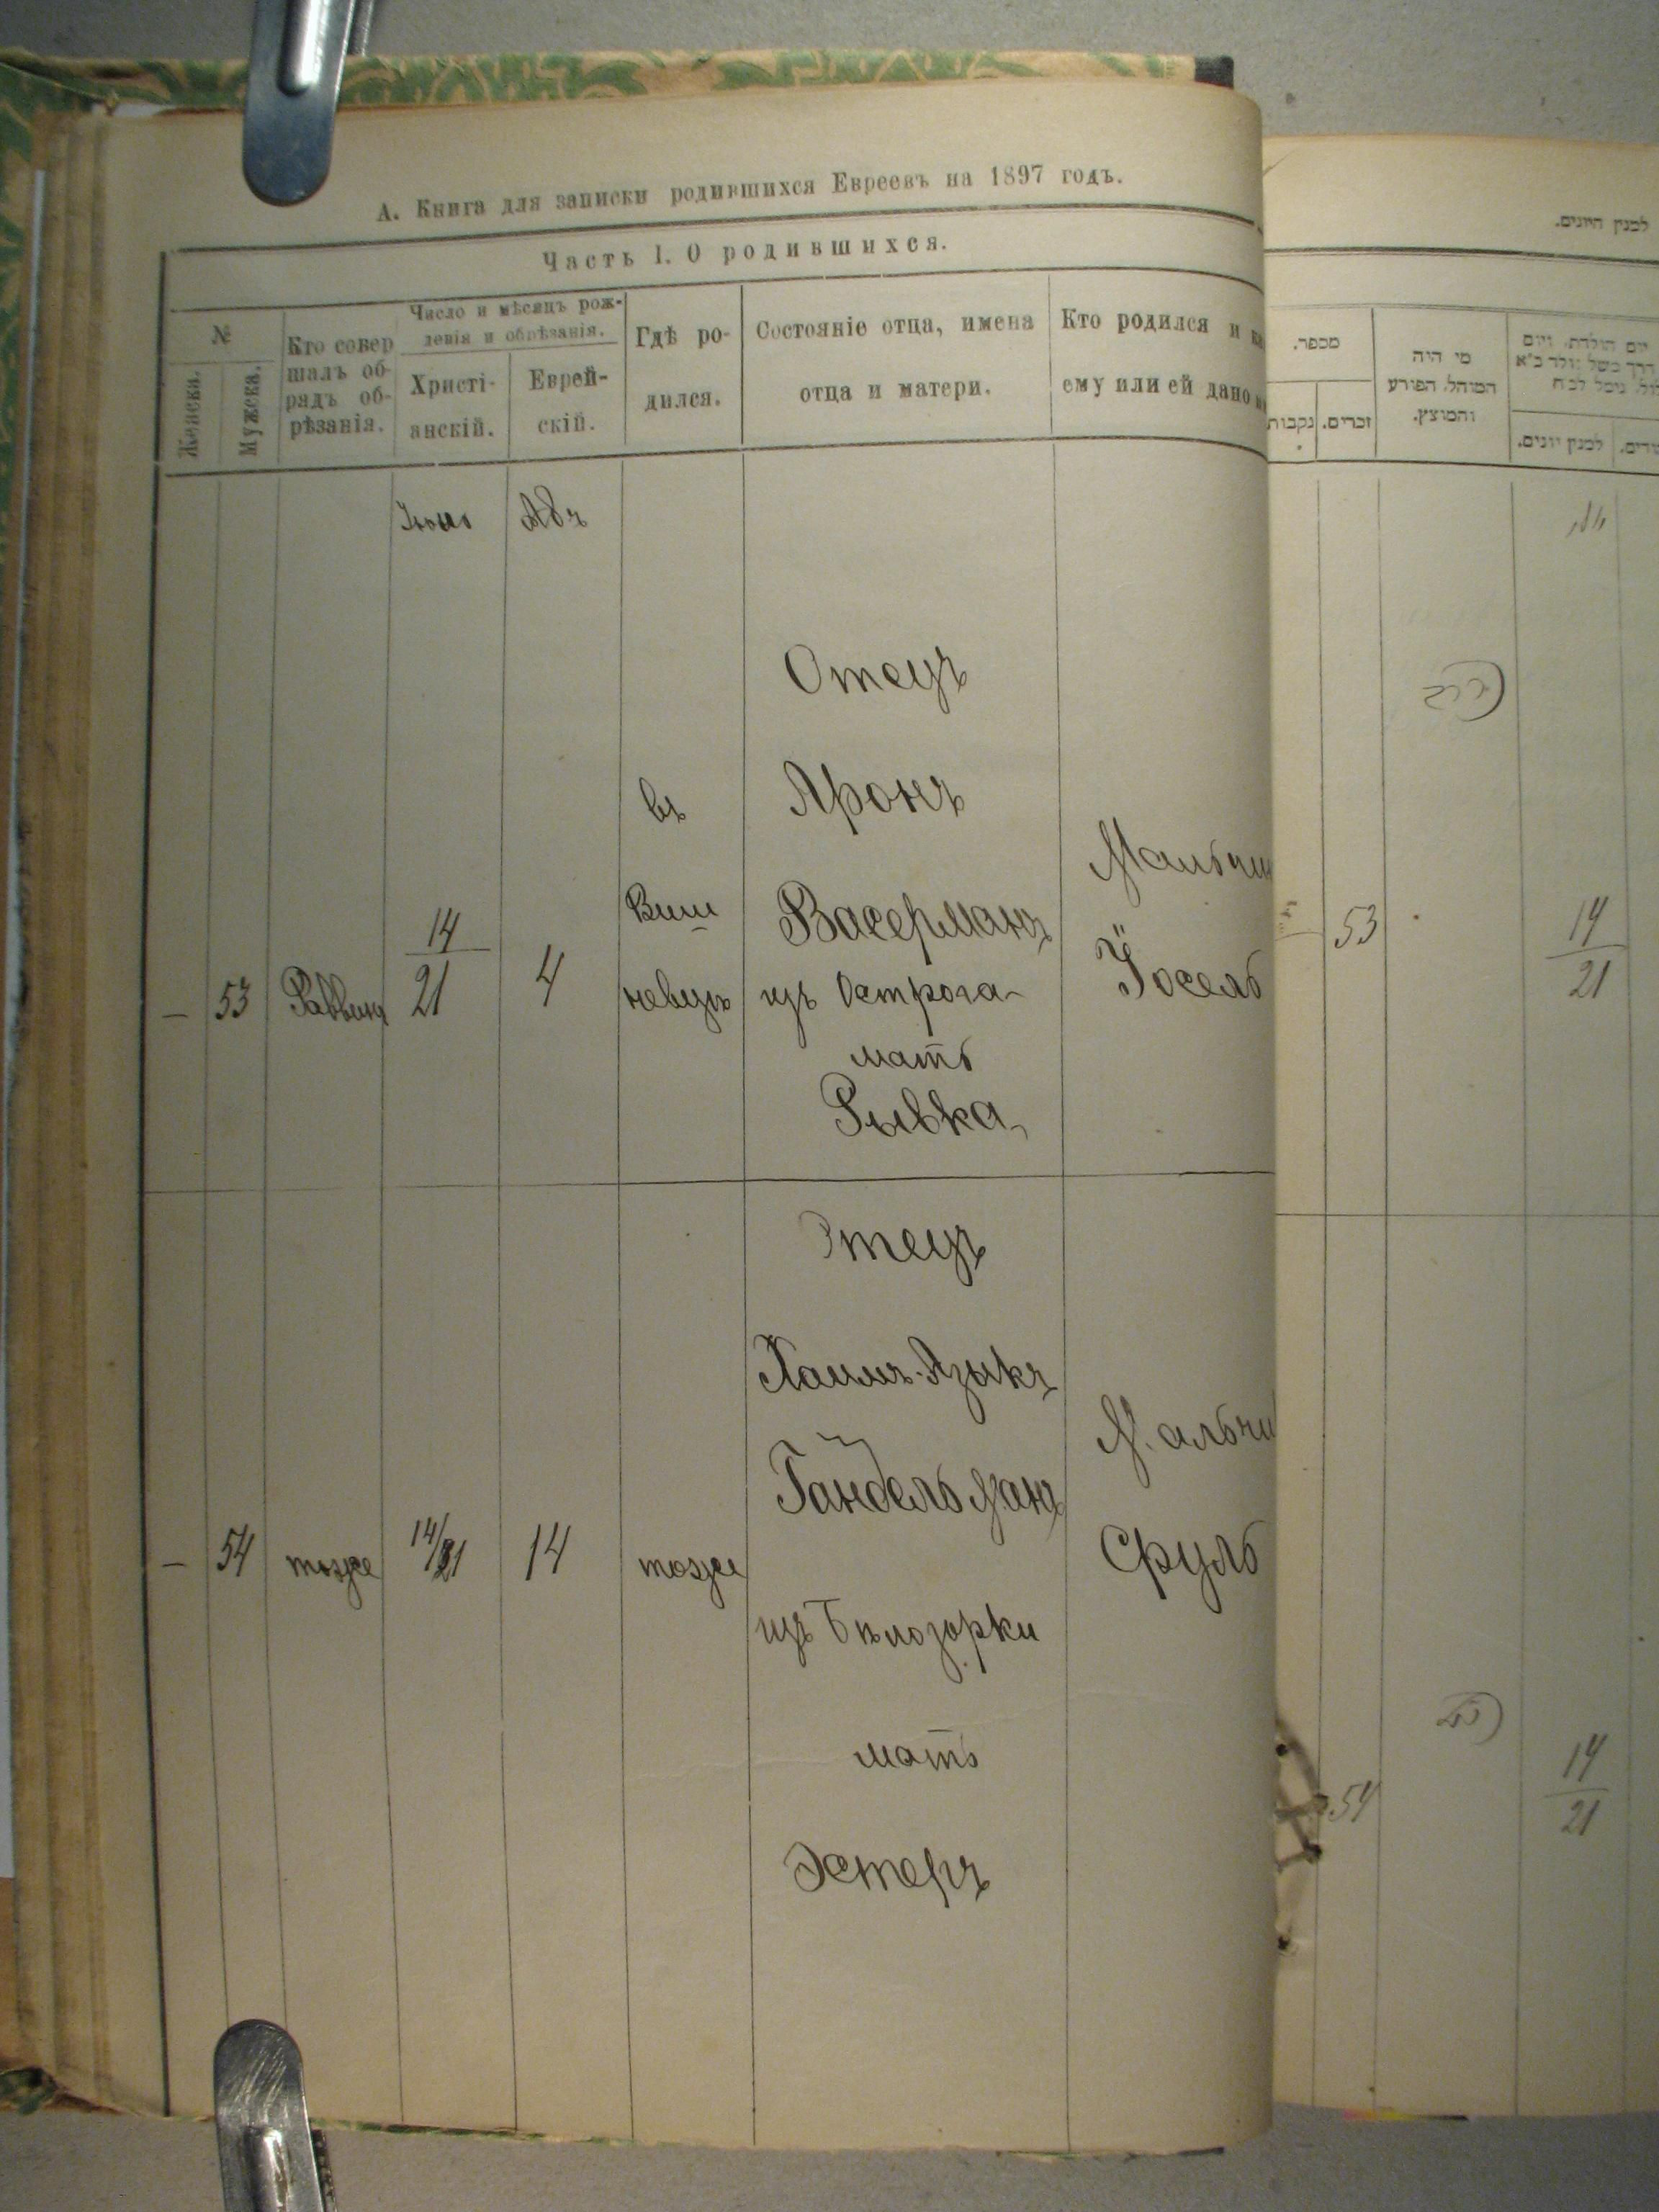 А. Книга для записки родившихся Евреевъ на 1897 годъ.
Часть I. О родившихся.
№
Женска.
Мужска.
Кто совер
шалъ об-
рядъ об-
рѣзанія.
Число и мѣсяцъ рож-
денія и обрѣзанія.
Христі-
анскій.
Еврей-
скій.
Гдѣ ро-
дился.
Состояніе отца, имена
отца и матери.
Кто родился и
ему или ей дано
Авъ
—
53
Раввинъ
14
21
4
въ
Виш
невцѣ
Отецъ
Аронъ
Васерманъ
изъ Острога
мать
Рывка
Мальчи
Йосель
—
54
тоже
14/21
14
тоже
Отецъ
Хаимъ-Азыкъ
Гандельманъ
изъ Бѣлозорки
мать
Эстеръ
Мальчи
Сруль
למנין היונים.
מספר.
נקבות
זכרים.
מי היה
המוהל, הפורע
והמוצץ.
למנין יונים.
53
14
21
54
14
21